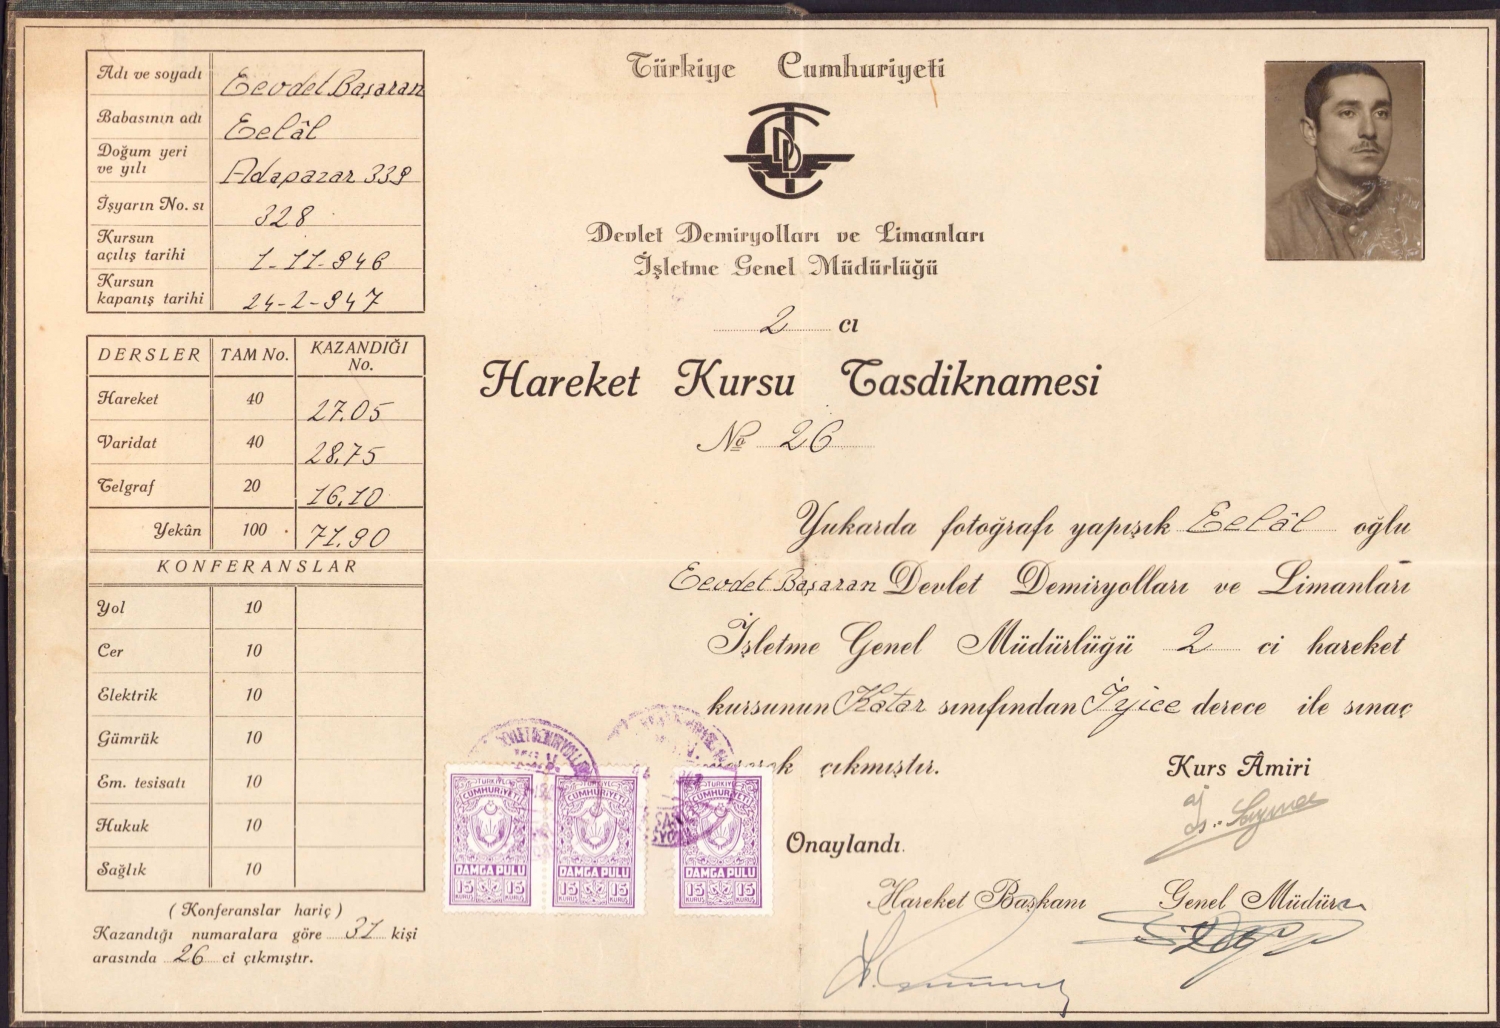 Adı ve soyadı Cevdet Başaran
Babasının adı Celâl
Doğum yeri
ve yılı Adapazar 339
İşyarın No. sı 328
Kursun
açılış tarihi 1-11-946
Kursun
kapanış tarihi 24-2-947
DERSLER TAM No. KAZANDIĞI
No.
Hareket 40 27.05
Varidat 40 28.75
Telgraf 20 16.10
Yekûn 100 71.90
KONFERANSLAR
Yol 10
Cer 10
Elektrik 10
Gümrük 10
Em. tesisatı 10
Hukuk 10
Sağlık 10
( Konferanslar hariç )
Kazandığı numaralara göre 31 kişi
arasında 26 ci çıkmıştır.
Türkiye Cumhuriyeti
TCDD
Devlet Demiryolları ve Limanları
İşletme Genel Müdürlüğü
2 cı
Hareket Kursu Tasdiknamesi
No 26
Yukarda fotoğrafı yapışık Celâl oğlu
Cevdet Başaran Devlet Demiryolları ve Limanları
İşletme Genel Müdürlüğü 2 ci hareket
kursunun Katar sınıfından İyice derece ile sınaç
çıkmıştır.
Kurs Âmiri
Onaylandı.
Hareket Başkanı Genel Müdür
TÜRKİYE
CUMHURİYETİ
DAMGA PULU
15 15
KURUŞ KURUŞ
TÜRKİYE
CUMHURİYETİ
DAMGA PULU
15 15
KURUŞ KURUŞ
TÜRKİYE
CUMHURİYETİ
DAMGA PULU
15 15
KURUŞ KURUŞ